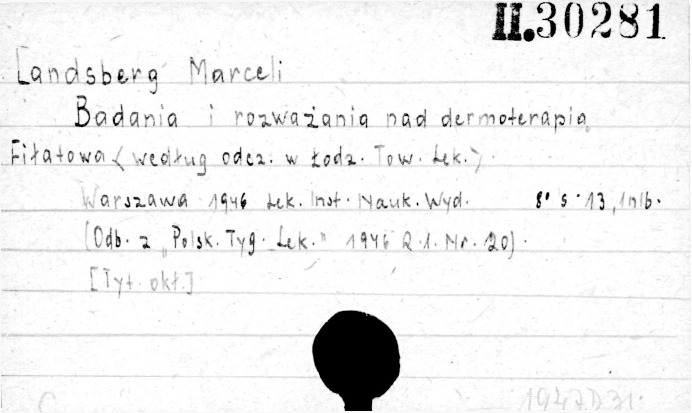 II.30281
Landsberg Marceli
Badania i rozważania nad dermoterapią
Fiłatowa <według odcz. w Łodz. Tow. Lek.>.
Warszawa 1946 Lek. Inst. Nauk. Wyd. 8° s. 13, 1nlb.
(Odb. z „Polsk. Tyg. Lek." 1946 R.1. Nr. 20).
[Tyt. okł.]